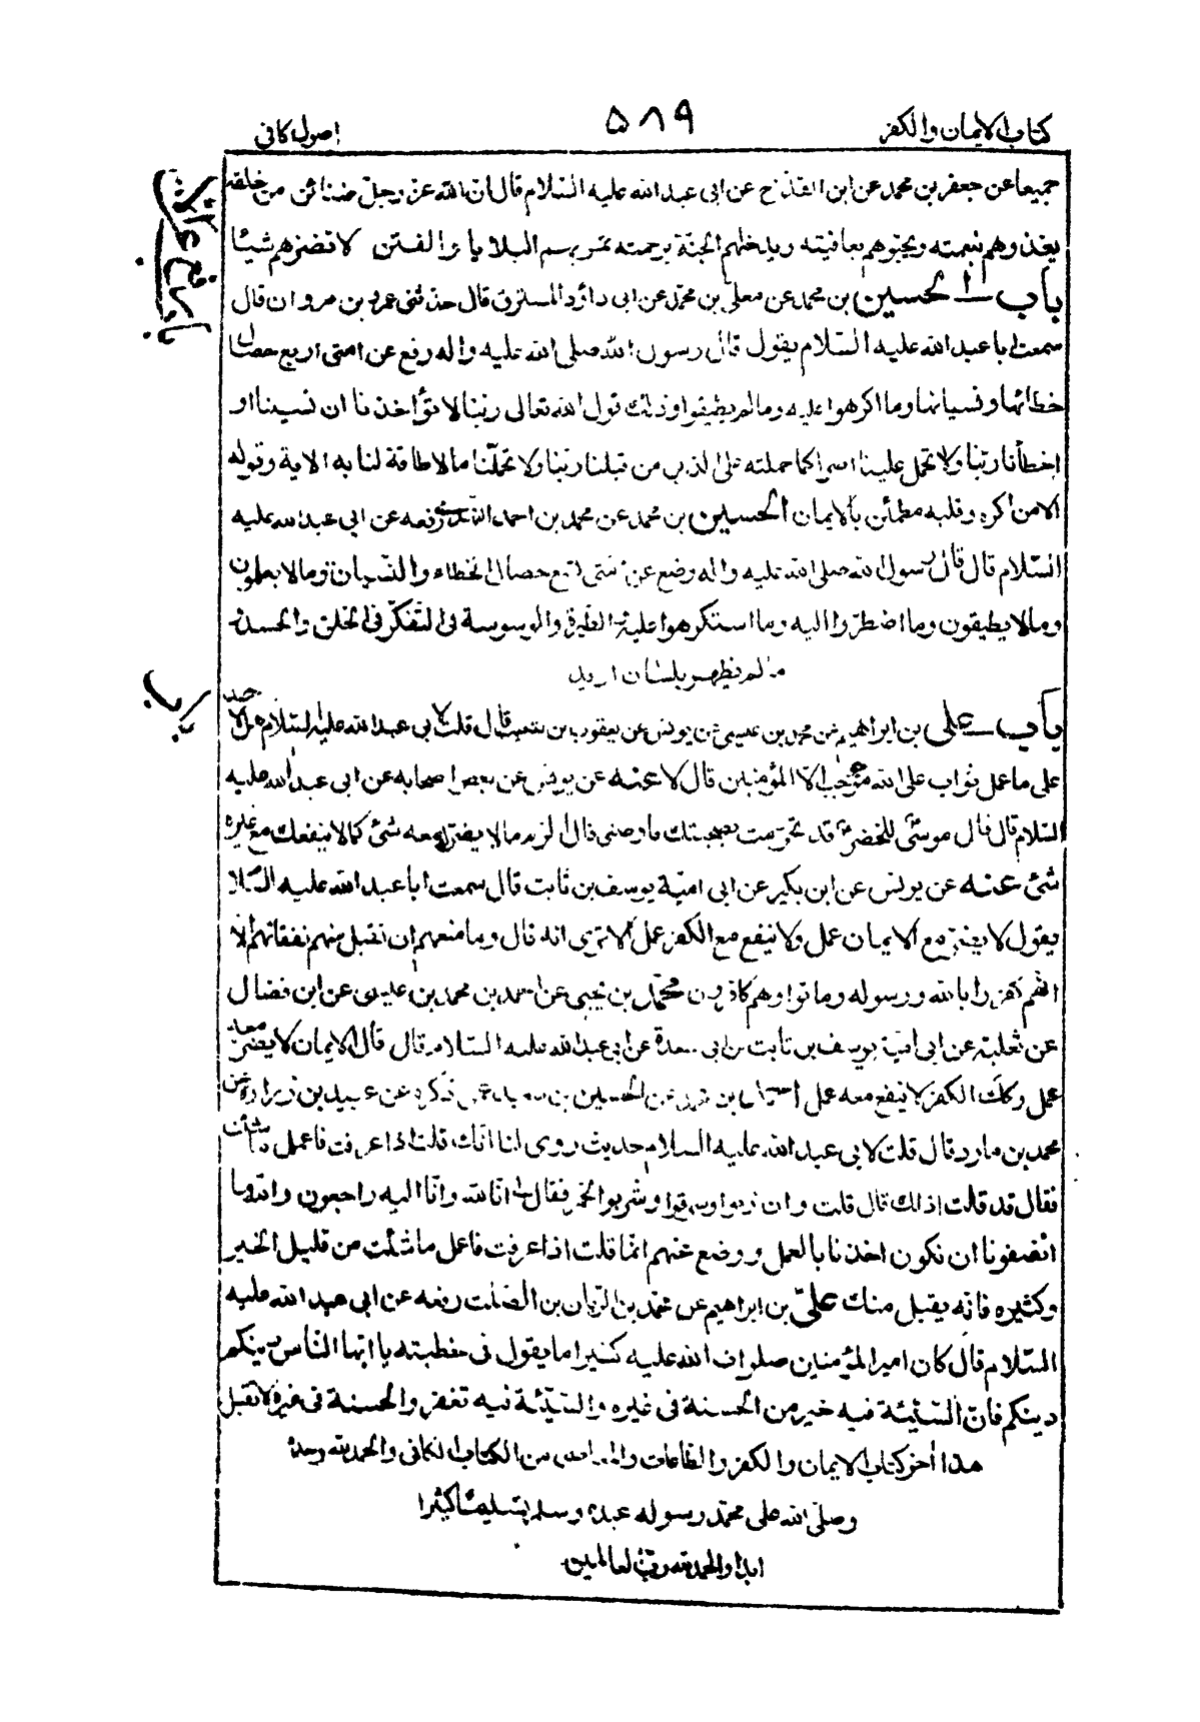 كتاب الايمان والكفر
۵۸۹
اصول كافى
جميعا عن جعفر بن محمد عن ابن القداح عن ابى عبد الله عليه السلام قال ان لله عز وجل ضنائن من خلقه
يغذوهم بنعمته ويحبوهم بعافيته ويدخلهم الجنة برحمته تمر بهم البلايا والفتن لا تضرهم شيئا
باب الحسين بن محمد عن معلى بن محمد عن ابى داود المسترق قال حدثنى عمرو بن مروان قال
سمعت ابا عبد الله عليه السلام يقول قال رسول الله صلى الله عليه واله رفع عن امتى اربع خصال
خطائها ونسيانها وما اكرهوا عليه وما لم يطيقوا وذلك قول الله تعالى ربنا لا تؤاخذنا ان نسينا او
اخطأنا ربنا ولا تحمل علينا اصرا كما حملته على الذين من قبلنا ربنا ولا تحملنا ما لا طاقة لنا به الاية وقوله
الا من اكره وقلبه مطمئن بالايمان الحسين بن محمد عن محمد بن احمد النهدى رفعه عن ابى عبد الله عليه
السلام قال قال رسول الله صلى الله عليه واله وضع عن امتى تسع خصال الخطاء والنسيان وما لا يعلمون
وما لا يطيقون وما اضطروا اليه وما استكرهوا عليه الطيرة والوسوسة فى التفكر فى الخلق والحسد
ما لم يظهر بلسان او يد
باب على بن ابراهيم عن محمد بن عيسى عن يونس عن يعقوب بن شعيب قال قلت لابى عبد الله عليه السلام هل لاحد
على ما عمل ثواب على الله موجب الا المؤمنين قال لا عنه عن يونس عن بعض اصحابه عن ابى عبد الله عليه
السلام قال قال موسى للخضر قد تحرمت بصحبتك فاوصنى قال الزم ما لا يضرك معه شئ كما لا ينفعك مع غيره
شئ عنه عن يونس عن ابن بكير عن ابى امية يوسف بن ثابت قال سمعت ابا عبد الله عليه السلا
يقول لا يضر مع الايمان عمل ولا ينفع مع الكفر عمل الا ترى انه قال وما منعهم ان تقبل منهم نفقاتهم الا
انهم كفروا بالله ورسوله وماتوا وهم كاذرون محمد بن يحيى عن احمد بن محمد بن عيسى عن ابن فضال
عن ثعلبة عن ابى امية يوسف بن ثابت بن ابى سعدة عن ابى عبد الله عليه السلام قال قال الايمان لا يضر معه
عمل وكذلك الكفر لا ينفع معه عمل احمد بن محمد عن الحسين بن سعيد عمن ذكره عن عبيد بن زرارة عن
محمد بن مارد قال قلت لابى عبد الله عليه السلام حديث روى لنا انك قلت اذا عرفت فاعمل ما شئت
فقال قد قلت ذلك قال قلت وان زنوا وسرقوا وشربوا الخمر فقال لى انا لله وانا اليه راجعون والله ما
انصفونا ان نكون اخذنا بالعمل ووضع عنهم انما قلت اذا عرفت فاعمل ما شئت من قليل الخير
وكثيره فانه يقبل منك على بن ابراهيم عن محمد بن الريان بن الصلت رفعه عن ابى عبد الله عليه
السلام قال كان امير المؤمنين صلوات الله عليه كثيرا ما يقول فى خطبته يا ايها الناس دينكم
دينكم فان السيئة فيه خير من الحسنة فى غيره والسيئة فيه تغفر والحسنة فى غيره لا تقبل
هذا اخر كتاب الايمان والكفر والطاعات والمعاصى من الكتاب الكافى والحمد لله وحده
وصلى الله على محمد رسوله عبده وسلم تسليما كثيرا
ابدا والحمد لله رب العالمين
باب